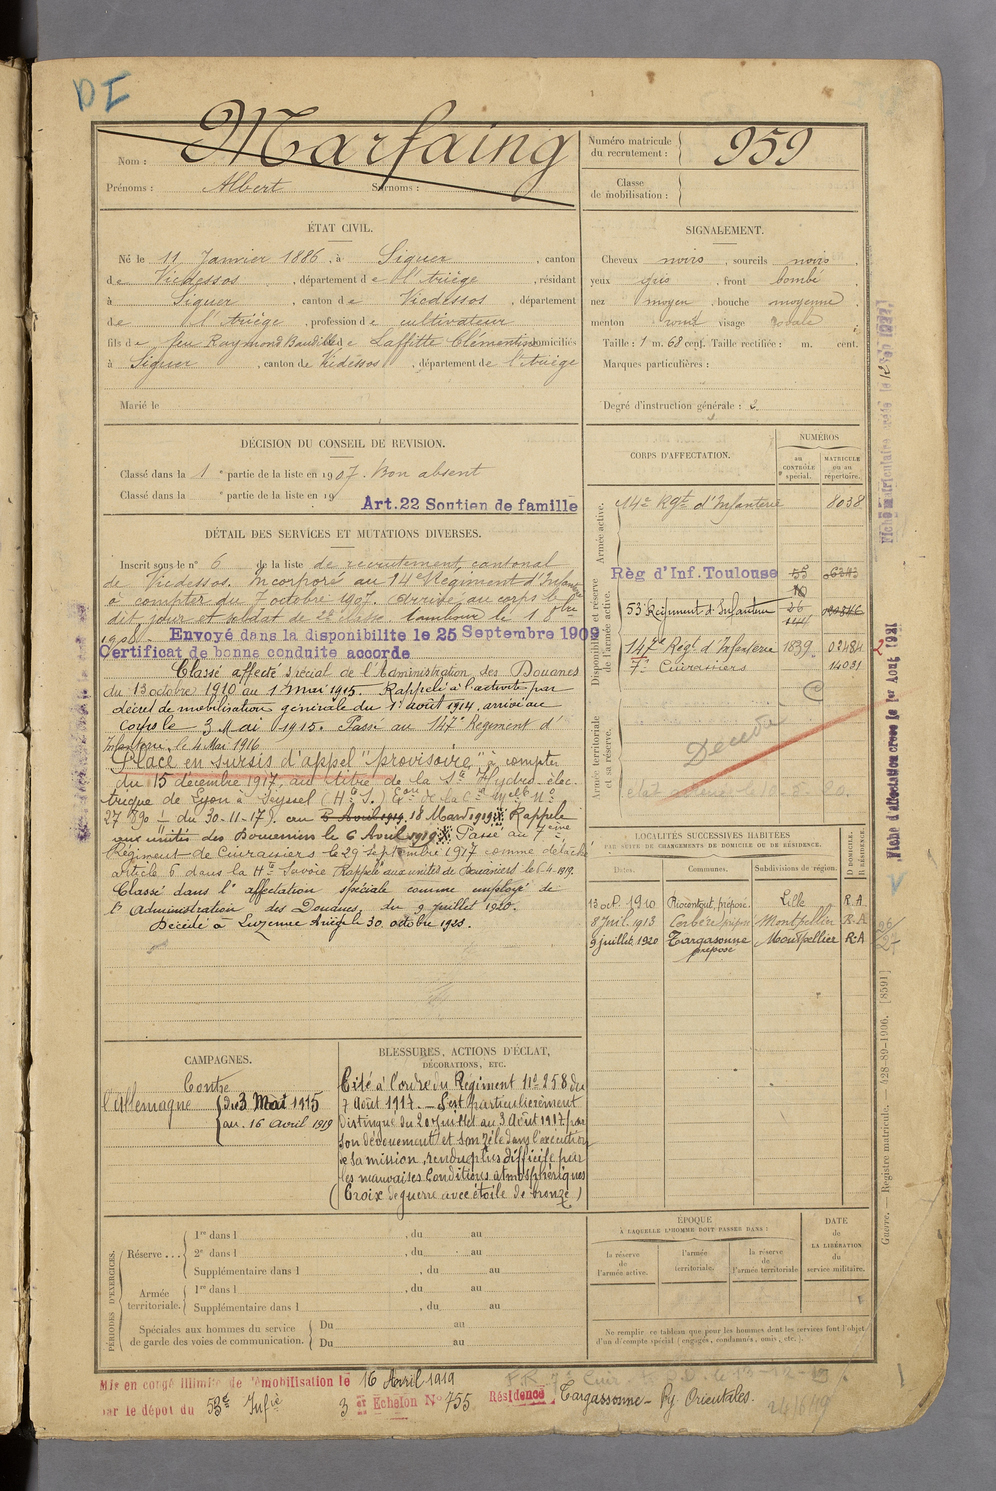 DI
Nom : Marfaing
Prénoms : Albert Surnoms :
Numéro matricule du recrutement : 959
Classe de mobilisation :
ÉTAT CIVIL.
Né le 11 Janvier 1886, à Siguer, canton
de Vicdessos, département de l'Ariège, résidant
à Siguer, canton de Vicdessos, département
de l'Ariège, profession de cultivateur
fils de feu Raymond Baudille et de Laffitte Clémentine domiciliés
à Siguer, canton de Vicdessos, département de l'Ariège
Marié le
SIGNALEMENT.
Cheveux noirs, sourcils noirs,
yeux gris, front bombé,
nez moyen, bouche moyenne,
menton rond visage ovale
Taille : 1 m. 68 cent. Taille rectifiée : m. cent.
Marques particulières :
Degré d'instruction générale : 2
DÉCISION DU CONSEIL DE REVISION.
Classé dans la 1e partie de la liste en 1907. Bon absent
Classé dans la e partie de la liste en 19
Art.22 Soutien de famille
DÉTAIL DES SERVICES ET MUTATIONS DIVERSES.
Inscrit sous le n° 6 de la liste de recrutement cantonal
de Vicdessos. Incorporé au 14e Régiment d'Infanterie
à compter du 7 octobre 1907. Arrivé au corps le
dit jour et soldat de 2e classe. tambour le 1 8bre
1908. Envoyé dans la disponibilité le 25 Septembre 1909
Certificat de bonne conduite accordé
Classé affecté spécial de l'Administration des Douanes
du 13 octobre 1910 au 1 mai 1915. Rappelé à l'activité par
décret de mobilisation générale du 1er août 1914, arrivé au
corps le 3 Mai 1915. Passé au 147e Régiment d'
Infanterie, le 4 Mai 1916
Placé en sursis d'appel "provisoire" à compter
du 15 décembre 1917, au titre de la Sté Hydro-élec-
trique de Lyon à Seyssel (Hte S.)
27890 du 30-11-17). au 5 Avril 1919, 18 Mars 1919. Rappelé
aux unités des Douaniers le 6 Avril 1919. Passé au 7ème
Régiment de Cuirassiers le 29 septembre 1917 comme détaché
article 6 dans la Hte Savoie Rappelé aux unités de Douaniers le 6-4-1919.
Classé dans l'affectation spéciale comme employé de
l'Administration des Douanes, du 9 juillet 1920.
Décédé à Luzenac Ariège le 30 octobre 1928.
CORPS D'AFFECTATION.
NUMÉROS
au CONTRÔLE spécial.
MATRICULE ou au répertoire.
Armée active.
14e Rgt d'Infanterie 8038
Disponibilité et réserve de l'armée active.
Règ d'Inf. Toulouse 55
53e Régiment d'Infanterie
147e Régt d'Infanterie 1839 02484
7e Cuirassiers 14031
Armée territoriale et sa réserve.
Décédé
LOCALITÉS SUCCESSIVES HABITÉES
PAR SUITE DE CHANGEMENTS DE DOMICILE OU DE RÉSIDENCE.
Dates. Communes. Subdivisions de région. D DOMICILE. R RÉSIDENCE.
13 oct. 1910 préposé. Lille R.A
8 Juil. 1913 Cerbère prépsé Montpellier R.A
9 juillet 1920 Targasonne préposé Montpellier R.A
CAMPAGNES.
Contre
l'Allemagne du 3 Mai 1915
au 16 avril 1919
BLESSURES, ACTIONS D'ÉCLAT,
DÉCORATIONS, ETC.
Cité à l'ordre du Régiment no 258 du
7 Août 1917. — S'est particulièrement
distingué du 20 juillet au 3 Août 1917 par
son dévouement et son zèle dans l'exécution
de sa mission, rendue plus difficile par
les mauvaises conditions atmosphériques
(Croix de guerre avec étoile de bronze)
PÉRIODES D'EXERCICES.
Réserve... 1re dans l , du au
2e dans l , du au
Supplémentaire dans l , du au
Armée territoriale. 1re dans l , du au
Supplémentaire dans l , du au
Spéciales aux hommes du service Du au
de garde des voies de communication. Du au
ÉPOQUE
À LAQUELLE L'HOMME DOIT PASSER DANS :
la réserve de l'armée active.
l'armée territoriale.
la réserve de l'armée territoriale
DATE de LA LIBÉRATION du service militaire.
Ne remplir ce tableau que pour les hommes dont les services font l'objet
d'un décompte spécial (engagés, condamnés, omis, etc.).
Mis en congé illimité de démobilisation le 16 Avril 1919
par le dépôt du 53e Infie 3 et Echelon N° 755 Résidence Targassonne - Py. Orientales.
Fiche d'affectation créée le 1er Aout 1921
Guerre. — Registre matricule. — 428-89-1906. [8591]